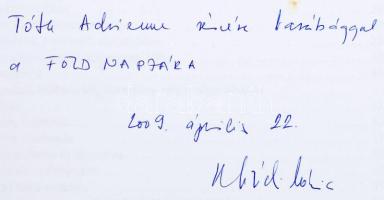 Tóth Adrienne részére barátsággal
a FÖLD NAPJÁRA
2009. április 22.